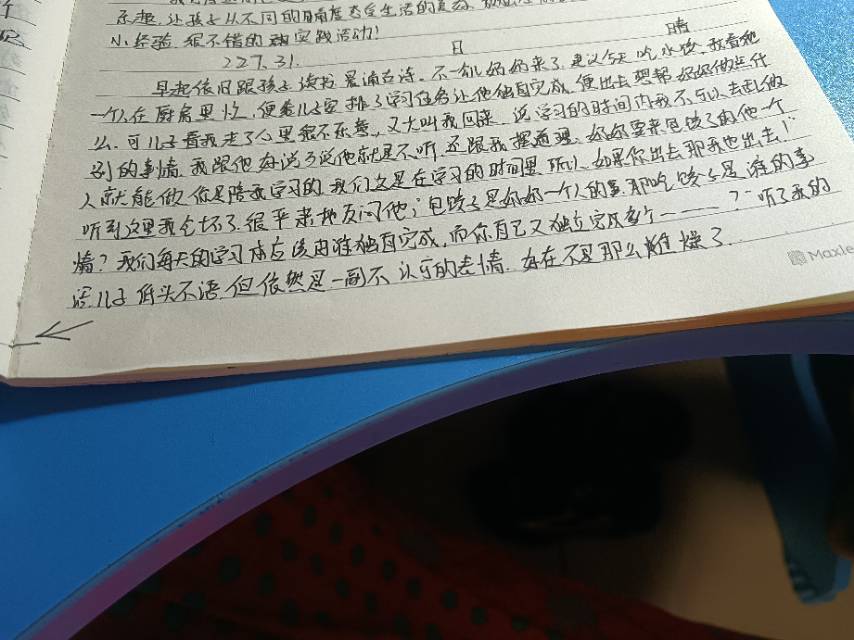 乐趣,让孩子从不同的角度感受生活的
小经验,很不错的 实践活动!
227.31. 日 晴
早起依旧跟孩子读书 晨诵古诗。不一会儿奶奶来了,建议今天吃水饺,我看她
一个人在厨房里忙,便给儿子安排了学习任务让他独自完成,便出去想帮奶奶做点什
么,可儿子看我走了心里很不乐意,又大叫我回来,说学习的时间内我不可以去做
别的事情,我跟他好说歹说他就是不听,还跟我摆道理:奶奶要来包饺子的她一个
人就能做,你是陪我学习的,我们这是在学习的时间里,所以,如果你出去那我也出去!"
听到这里我气坏了,很严肃地反问他;包饺子是奶奶一个人的事,那吃饺子是谁的事
情?我们每天的学习本应该由谁独自完成,而你自己又独立完成多个———?"听了我的
话,儿子低头不语,但依然是一副不认可的表情,好在不是那么
Maxle